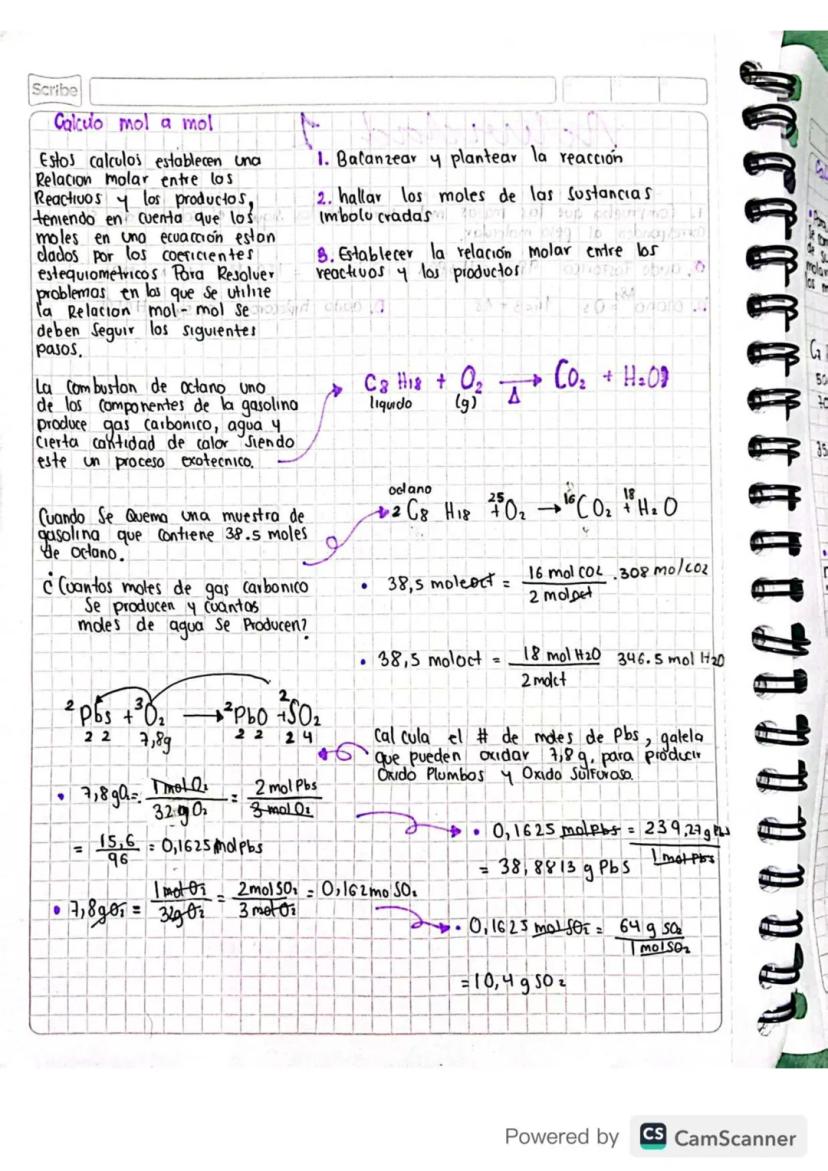 Scribe
Calculo mol a mol
Estos calculos establecen una
Relacion molar entre los
Reactivos y los productos,
teniendo en cuenta que los
moles en una ecuacción estan
dados por los coeficientes
estequiometricos Para Resolver
problemas en los que se utilize
la Relacion mol-mol se
deben Seguir los siguientes
pasos.
1. Balanzear y plantear la reacción
2. hallar los moles de las Sustancias
imbolucradas
3. Establecer la relación molar entre los
reactivos y los productos
La combustion de octano uno
de los componentes de la gasolina
produce gas carbonico, agua y
cierta cantidad de calor siendo
este un proceso exotecnico.
C8 H18 + O2 →Δ CO2 + H2O
liquido (g)
Cuando Se Quema una muestra de
gasolina que contiene 38.5 moles
de octano.
¿Cuantos moles de gas carbonico
Se producen y cuantos
moles de agua Se Producen?
octano
2 C8 H18 + 25 O2 → 16 CO2 + 18 H2O
• 38,5 moleoct = 16 mol CO2 / 2 moloct . 308 mol CO2
• 38,5 moloct = 18 mol H2O / 2 molct 346.5 mol H2O
2 Pbs + 3 O2 → 2 PbO + 2 SO2
2 2 7,8g 2 2 2 4
Calcula el # de moles de Pbs, galela
que pueden oxidar 7,8 g. para producir
Oxido Plumbos y Oxido Sulfuroso.
• 7,8 gO2 = 1 mol O2 / 32 g O2 = 2 mol Pbs / 3 mol O2
= 15,6 / 96 = 0,1625 mol pbs
• 0,1625 molPbs = 239,27g Pbs / 1 mol Pbs
= 38,8813 g PbS
• 7,8gO2 = 1 mol O2 / 32g O2 = 2mol SO2 / 3 mol O2 = 0,162mo SO2
• 0,1625 mol SO2 = 64 g SO2 / 1 mol SO2
= 10,4 g SO2
Powered by CS CamScanner